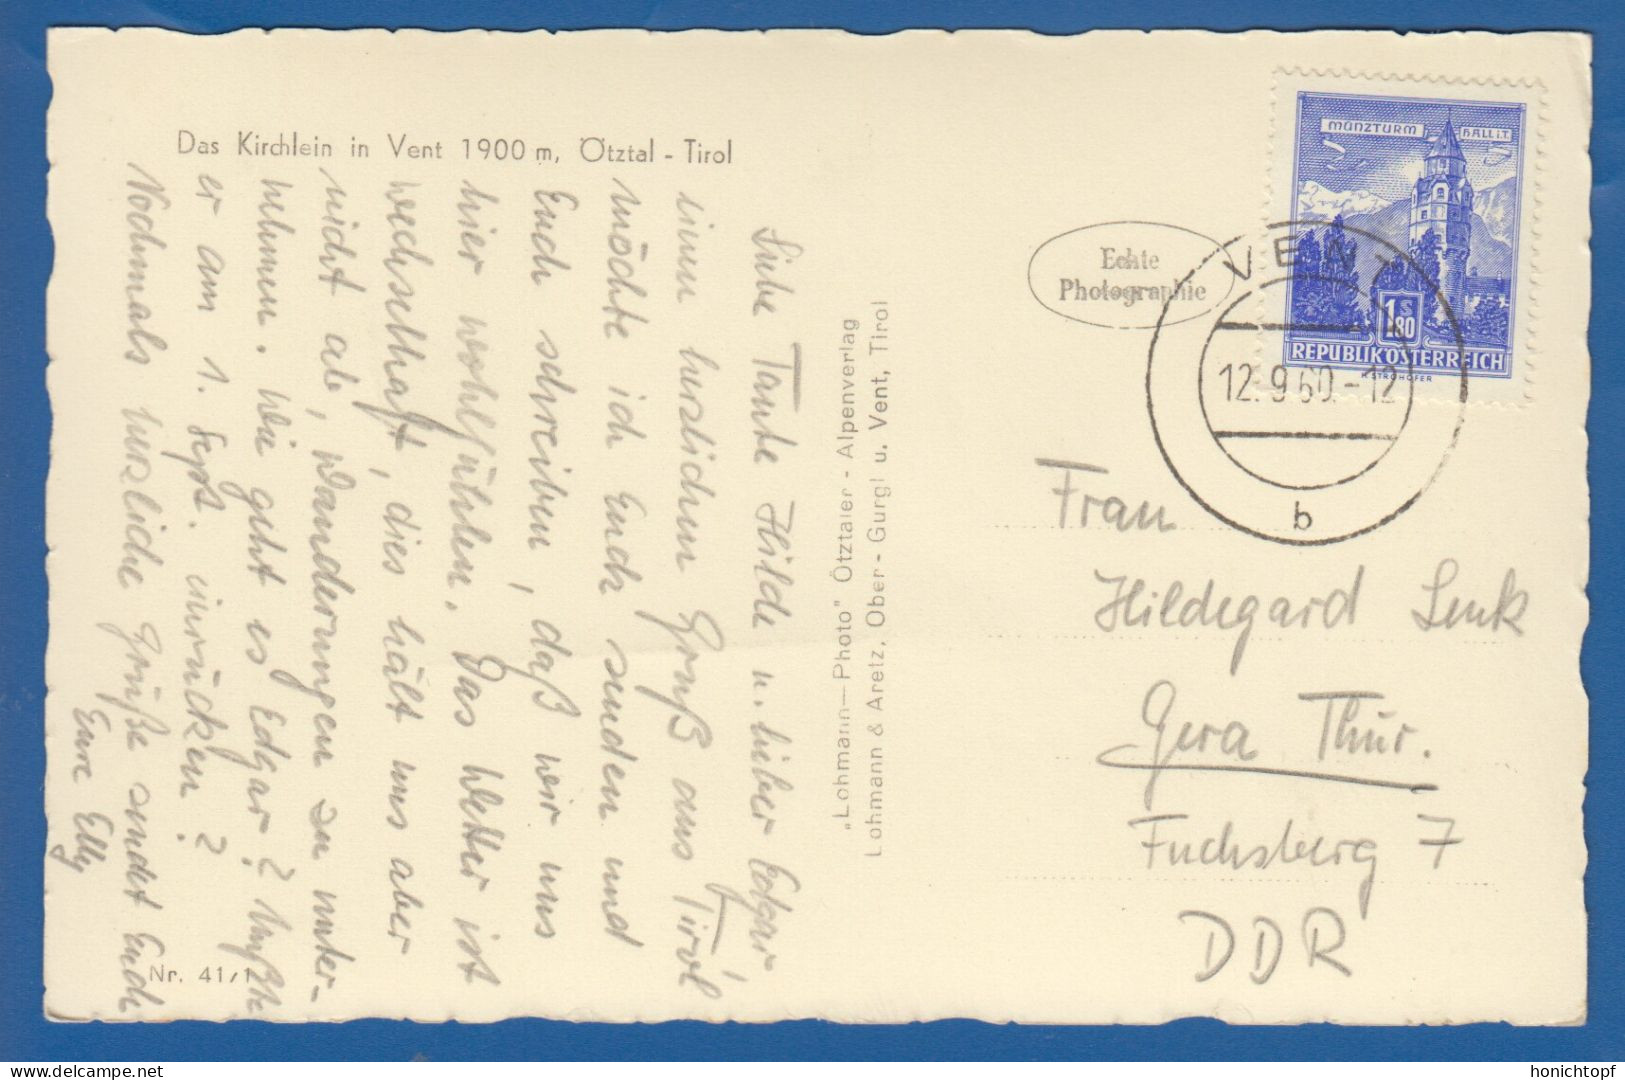 Das Kirchlein in Vent 1900 m, Ötztal - Tirol
Liebe Tante Hilde u. lieber Edgar,
einen herzlichen Gruß aus Tirol
möchte ich Euch senden und
Euch schreiben, daß wir uns
hier wohlfühlen. Das Wetter ist
wechselhaft, dies hält uns aber
nicht ab, Wanderungen zu unter-
nehmen. Wie geht es Edgar? Mußte
er am 1. Sept. einrücken?
Nochmals herzliche Grüße sendet Euch
Eure Elly
Nr. 41/1
„Lohmann—Photo" Ötztaler - Alpenverlag
Lohmann & Aretz, Ober - Gurgl u. Vent, Tirol
Echte
Photographie
MÜNZTURM HALL i.T.
1 S 80
REPUBLIK ÖSTERREICH
H. STROHOFER
VENT
12. 9. 60. - 12
b
Frau
Hildegard Senk
Gera Thür.
Fuchsberg 7
DDR
honichtopf